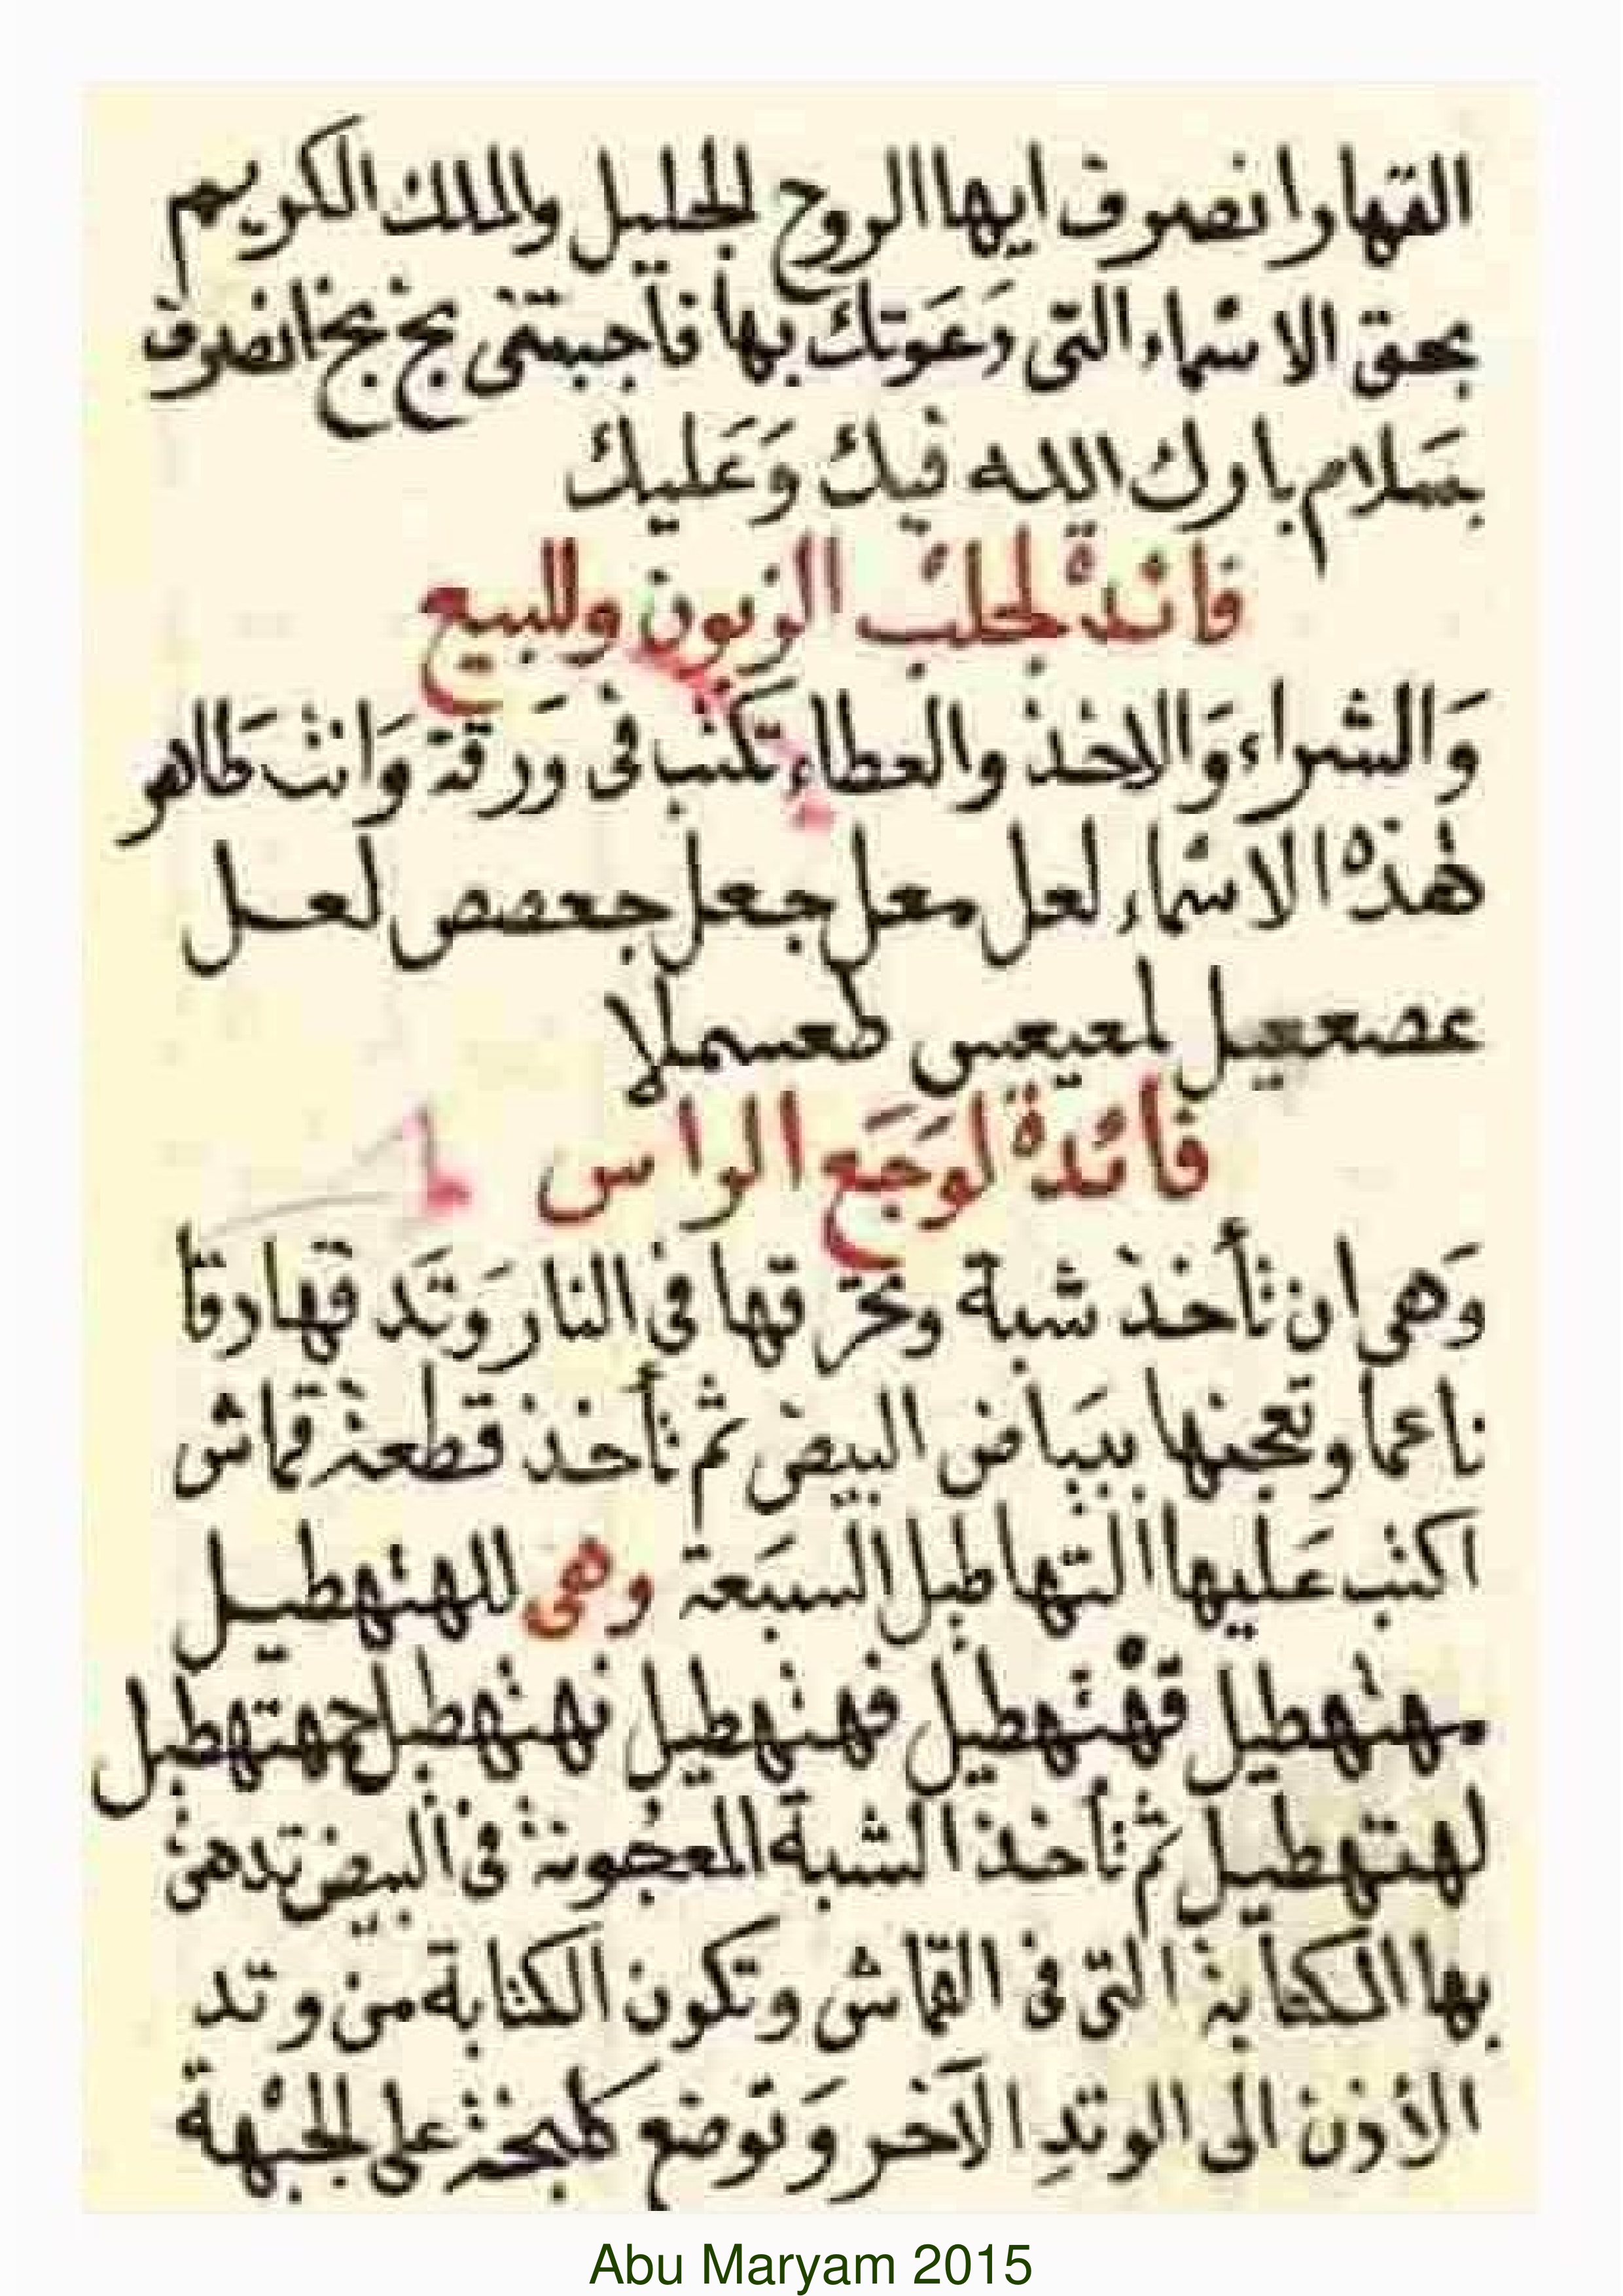 القهار انصرف ايها الروح الجليل والملك الكريم
بحق الاسماء التى دَعَوتك بها فأجبتنى بخ بخ انصرف
بسَلام بارك الله فيك وَعَليك
فائدة لجلب الزبون وللبيع
وَالشراء وَالاخذ والعطاء تكتب فى وَرقة وَانت طاهر
هذه الاسماء لعل معل جعل جعصص لعل
عصعيل لمعيعس طعسملا
فائدة لوَجَع الراس
وَهى ان تأخذ شبة وتحرقها فى النار وَتَدقها دقا
ناعما وتعجنها ببيَاض البيض ثم تأخذ قطعة قماش
اكتب عَليها التهاطيل السبَعة وهى للهتهطيل
مهتهطيل قهتهطيل فهتهطيل نهتهطيل جهتهطيل
لهتهطيل ثم تأخذ الشبة المعجونة فى البيض تدهن
بها الكتابة التى فى القماش وتكون الكتابة من وتد
الأذن الى الوتدِ الآخر وَتوضع كلبخة على الجبهة
Abu Maryam 2015